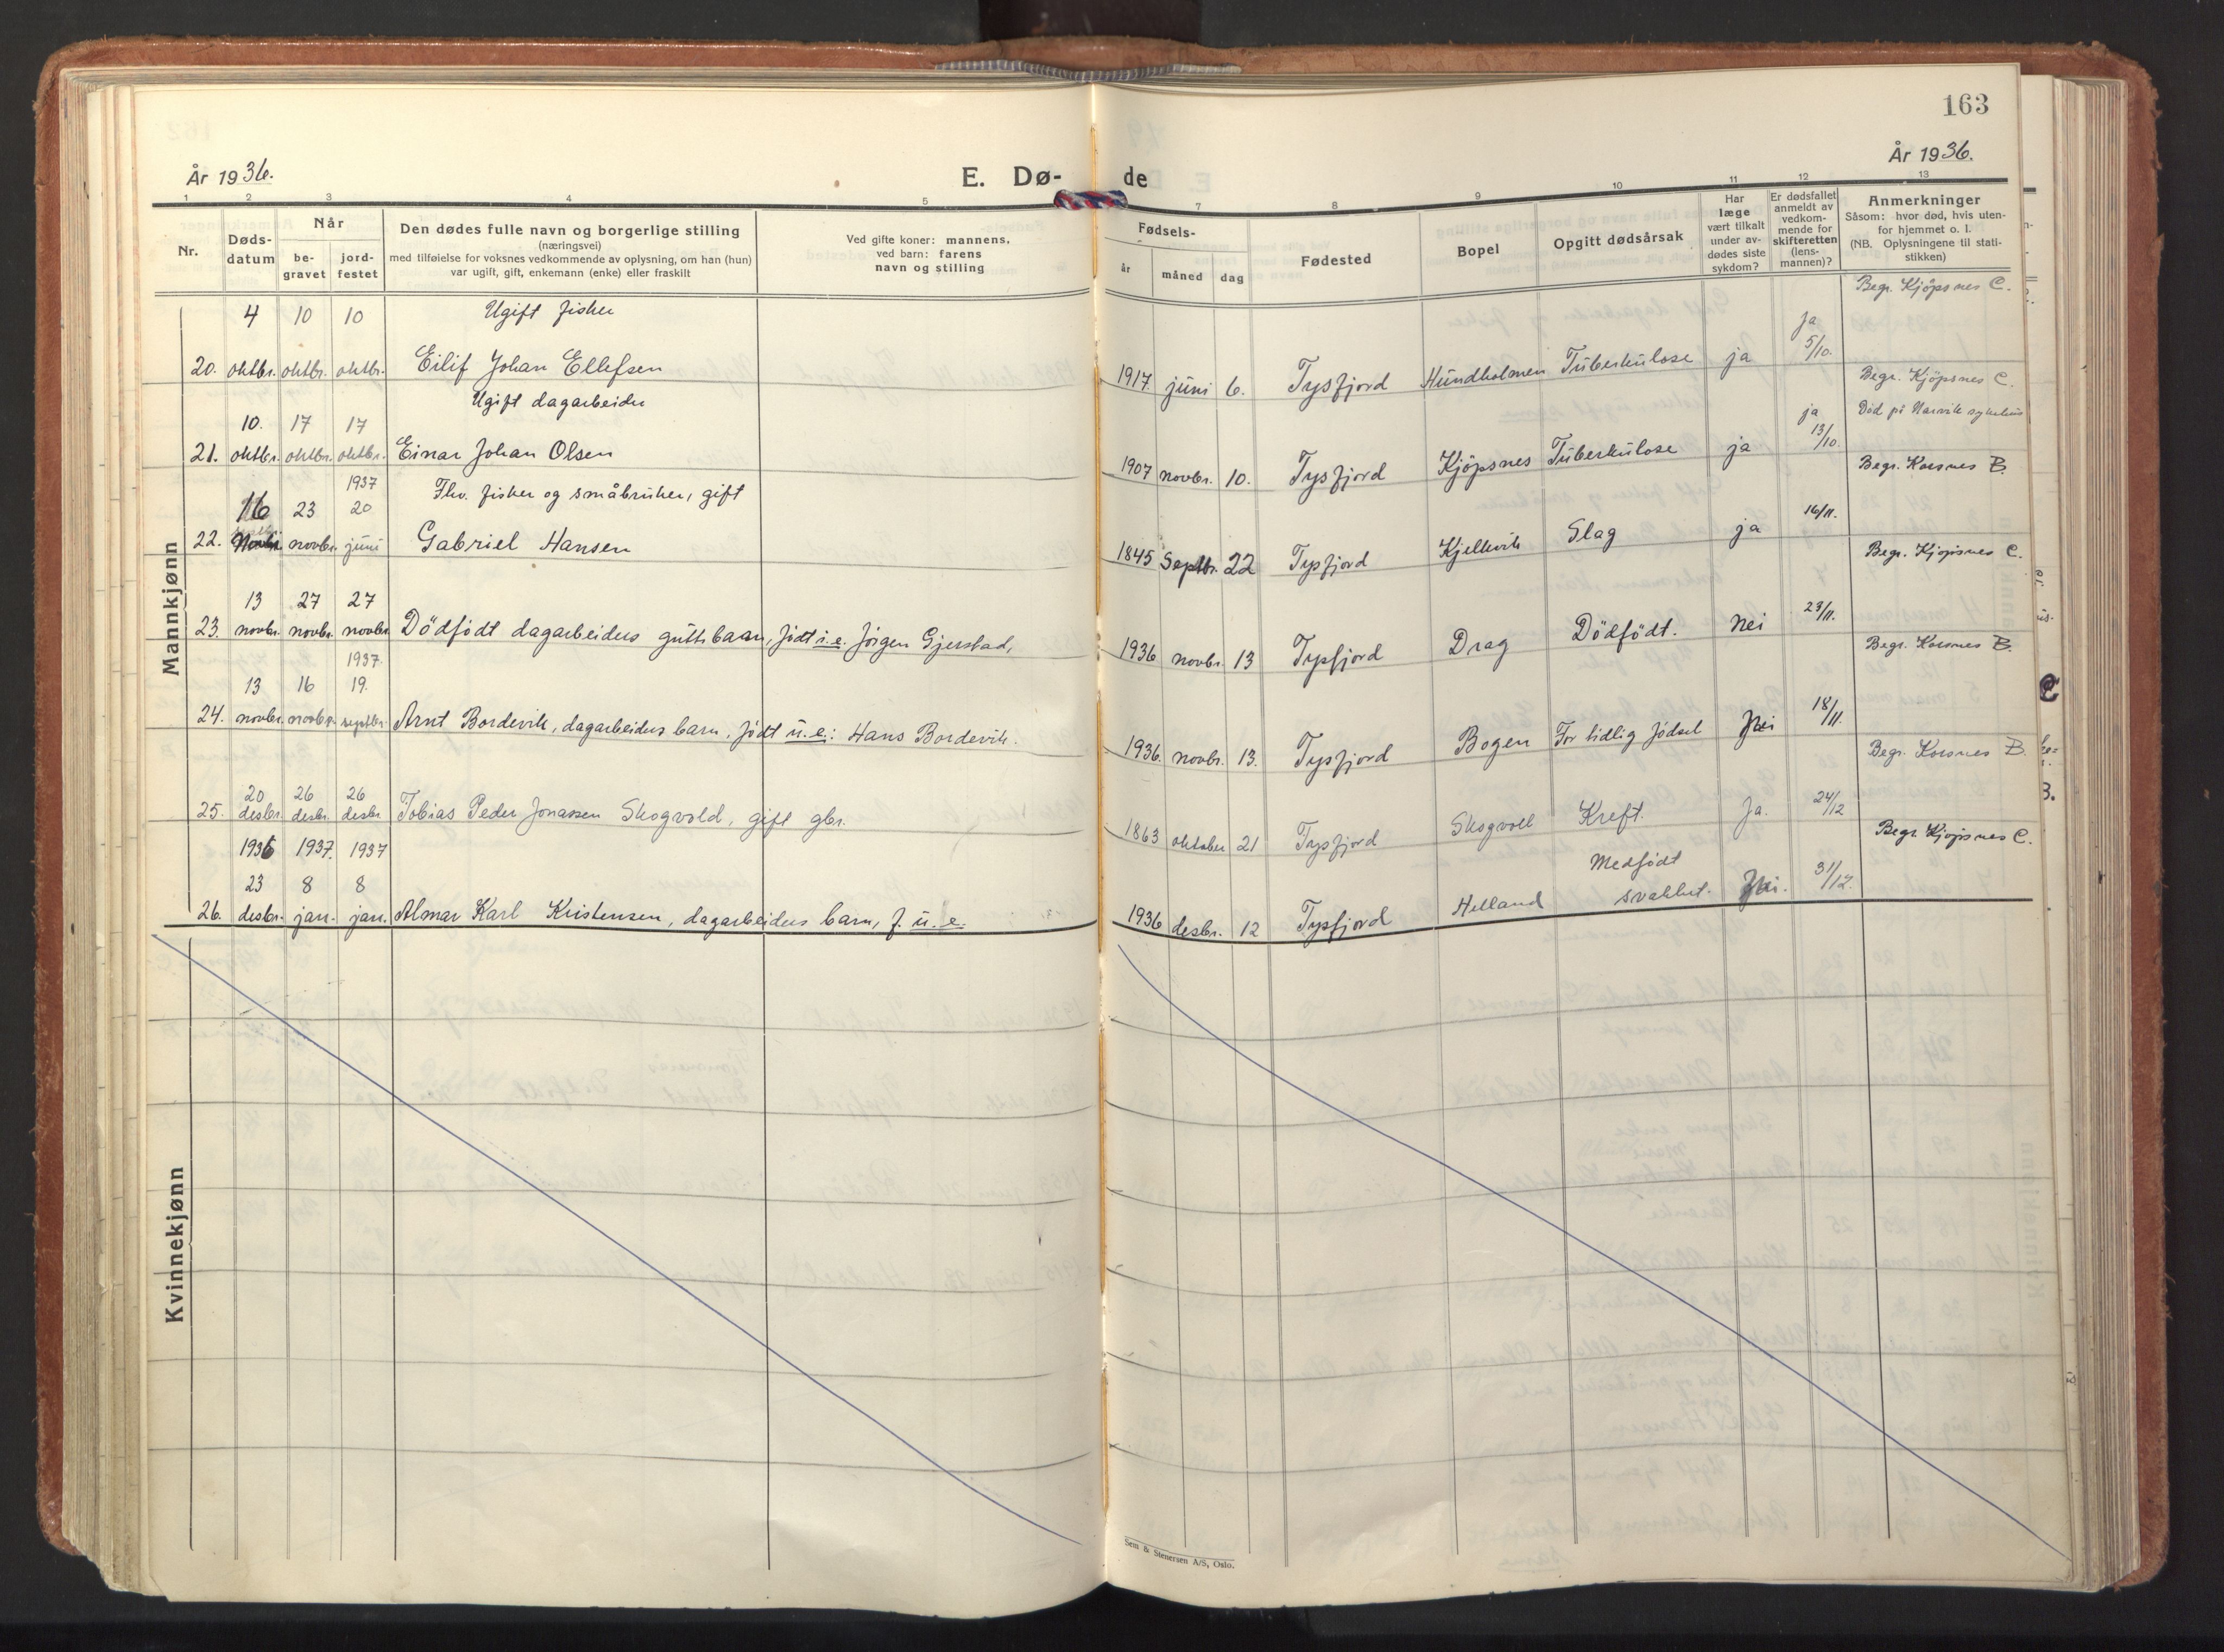 163
År 1936.
År 1936.
E. Dø- de
1 2 3 4 5 7 8 9 10 11 12 13
Nr.
Døds-
datum
Når
be-
gravet
jord-
festet
Den dødes fulle navn og borgerlige stilling
(næringsvei)
med tilføielse for voksnes vedkommende av oplysning, om han (hun)
var ugift, gift, enkemann (enke) eller fraskilt
Ved gifte koner: mannens,
ved barn: farens
navn og stilling
Fødsels-
år måned dag
Fødested
Bopel
Opgitt dødsårsak
Har
læge
vært tilkalt
under av-
dødes siste
sykdom?
Er dødsfallet
anmeldt av
vedkom-
mende for
skifteretten
(lens-
mannen)?
Anmerkninger
Såsom: hvor død, hvis uten-
for hjemmet o. l.
(NB. Oplysningene til stati-
stikken)
Mannkjønn
4 10 10 Ugift fisker Begr. Kjöpsnes C.
20. oktbr. oktbr. oktbr. Eilif Johan Ellefsen 1917 juni 6. Tysfjord Hundholmen Tuberkulose ja ja 5/10.
10. 17 17 Ugift dagarbeider Begr. Kjöpsnes C.
Död på Narvik sykehus
21. oktbr. oktbr. oktbr. Einar Johan Olsen 1907 novbr. 10. Tysfjord Kjöpsnes Tuberkulose ja ja 13/10.
1937
16 23 20 Fhv. fisker og småbruker, gift Begr. Korsnes B.
22. novbr. juni Gabriel Hansen 1845 Septbr. 22 Tysfjord Kjelkvik Slag ja 16/11.
13 27 27 Begr. Kjöpsnes C.
23. novbr. novbr. novbr. Dödfödt dagarbeiders guttebarn, födt i.e. Jörgen Gjerstad, 1936 novbr. 13 Tysfjord Drag Dödfödt. Nei 23/11.
1937.
13 16 19. Begr. Korsnes B.
24. novbr. novbr. septbr. Arnt Bordevik, dagarbeiders barn, födt u.e.: Hans Bordevik. 1936. novbr. 13. Tysfjord Bogen For tidlig födsel Nei 18/11.
20 26 26 Begr. Korsnes B.
25. desbr. desbr. desbr. Tobias Peder Jonassen Skogvold, gift gbr. 1863 oktober 21 Tysfjord Skogvoll Kreft. Ja. 24/12
1936 1937. 1937 Begr. Kjöpsnes C.
23 8 8 Medfödt
26. desbr. jan. jan. Almar Karl Kristensen, dagarbeiders barn, f. u.e. 1936 desbr. 12 Tysfjord Helland svakhet. Nei. 31/12.
Kvinnekjønn
Sem & Stenersen A/S, Oslo.